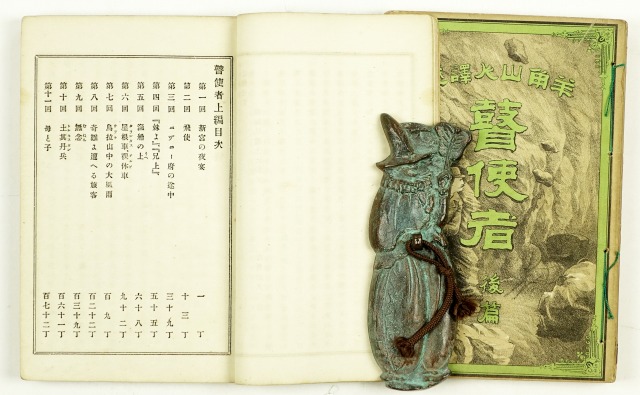 瞽使者上編目次
第一回 新宮の夜宴 一丁
第二回 飛使 十三丁
第三回 府の途中 三十九丁
第四回 『妹よ』『兄上』 五十五丁
第五回 の上 六十八丁
第六回 九十二丁
第七回 烏拉山中の大風雨 百九丁
第八回 奇難よ遭へる旅客 百二十二丁
第九回 無念 百三十九丁
第十回 士兵 百六十一丁
第十一回 母と子 百七十二丁
羊角山人譯
瞽使者
後篇